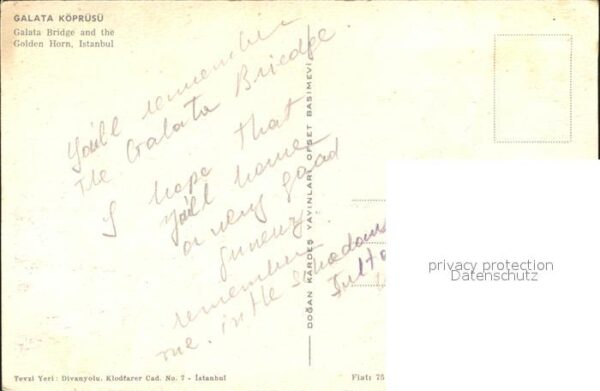 GALATA KÖPRÜSÜ
Galata Bridge and the
Golden Horn, Istanbul
You'll remember
the Galata Briedge.
I hope that
you'll home
a very good
remember
me. in the
DOĞAN KARDEŞ YAYINLARI OFSET BASIMEVİ
privacy protection
Datenschutz
Tevzi Yeri: Divanyolu. Klodfarer Cad. No. 7 - İstanbul
Fiatı 75